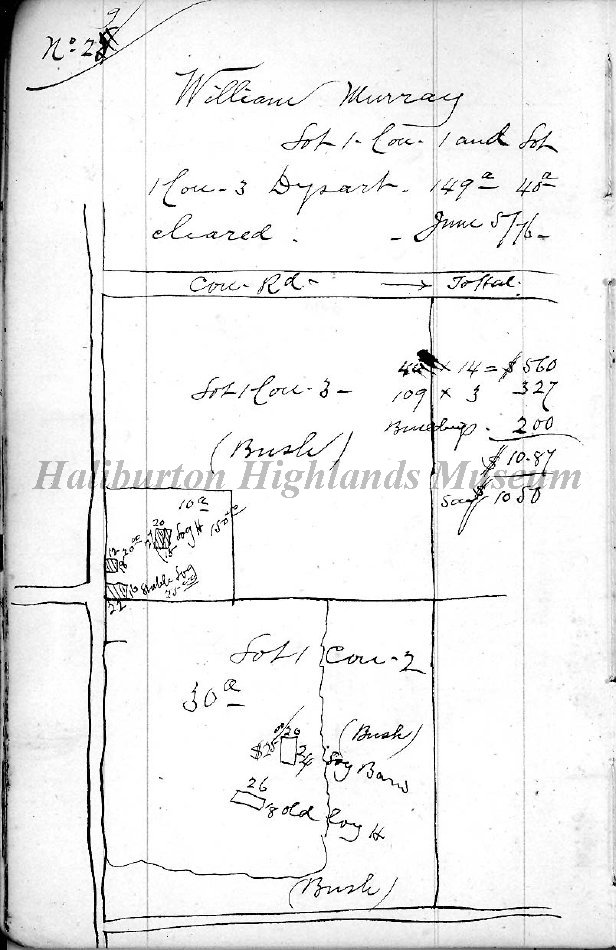 No. 29
William Murray
Lot 1 - Con - 1 and Lot
1 Con - 3 Dysart - 149 a 40 a
cleared. - June 5/76 -
Con - Rd - → Total.
40 × 14 = $560
Lot 1 Con - 3 -
109 × 3 327
Buildings - 200
(Bush)
$ 10.87
Say $ 1050
Haliburton Highlands Museum
10 a
20
Log H 150
18
12
20
Stable Log
16
22
Lot 1 Con - 2
30 a
(Bush)
20
$25
24 Log Barn
26
8 old Log H
(Bush)